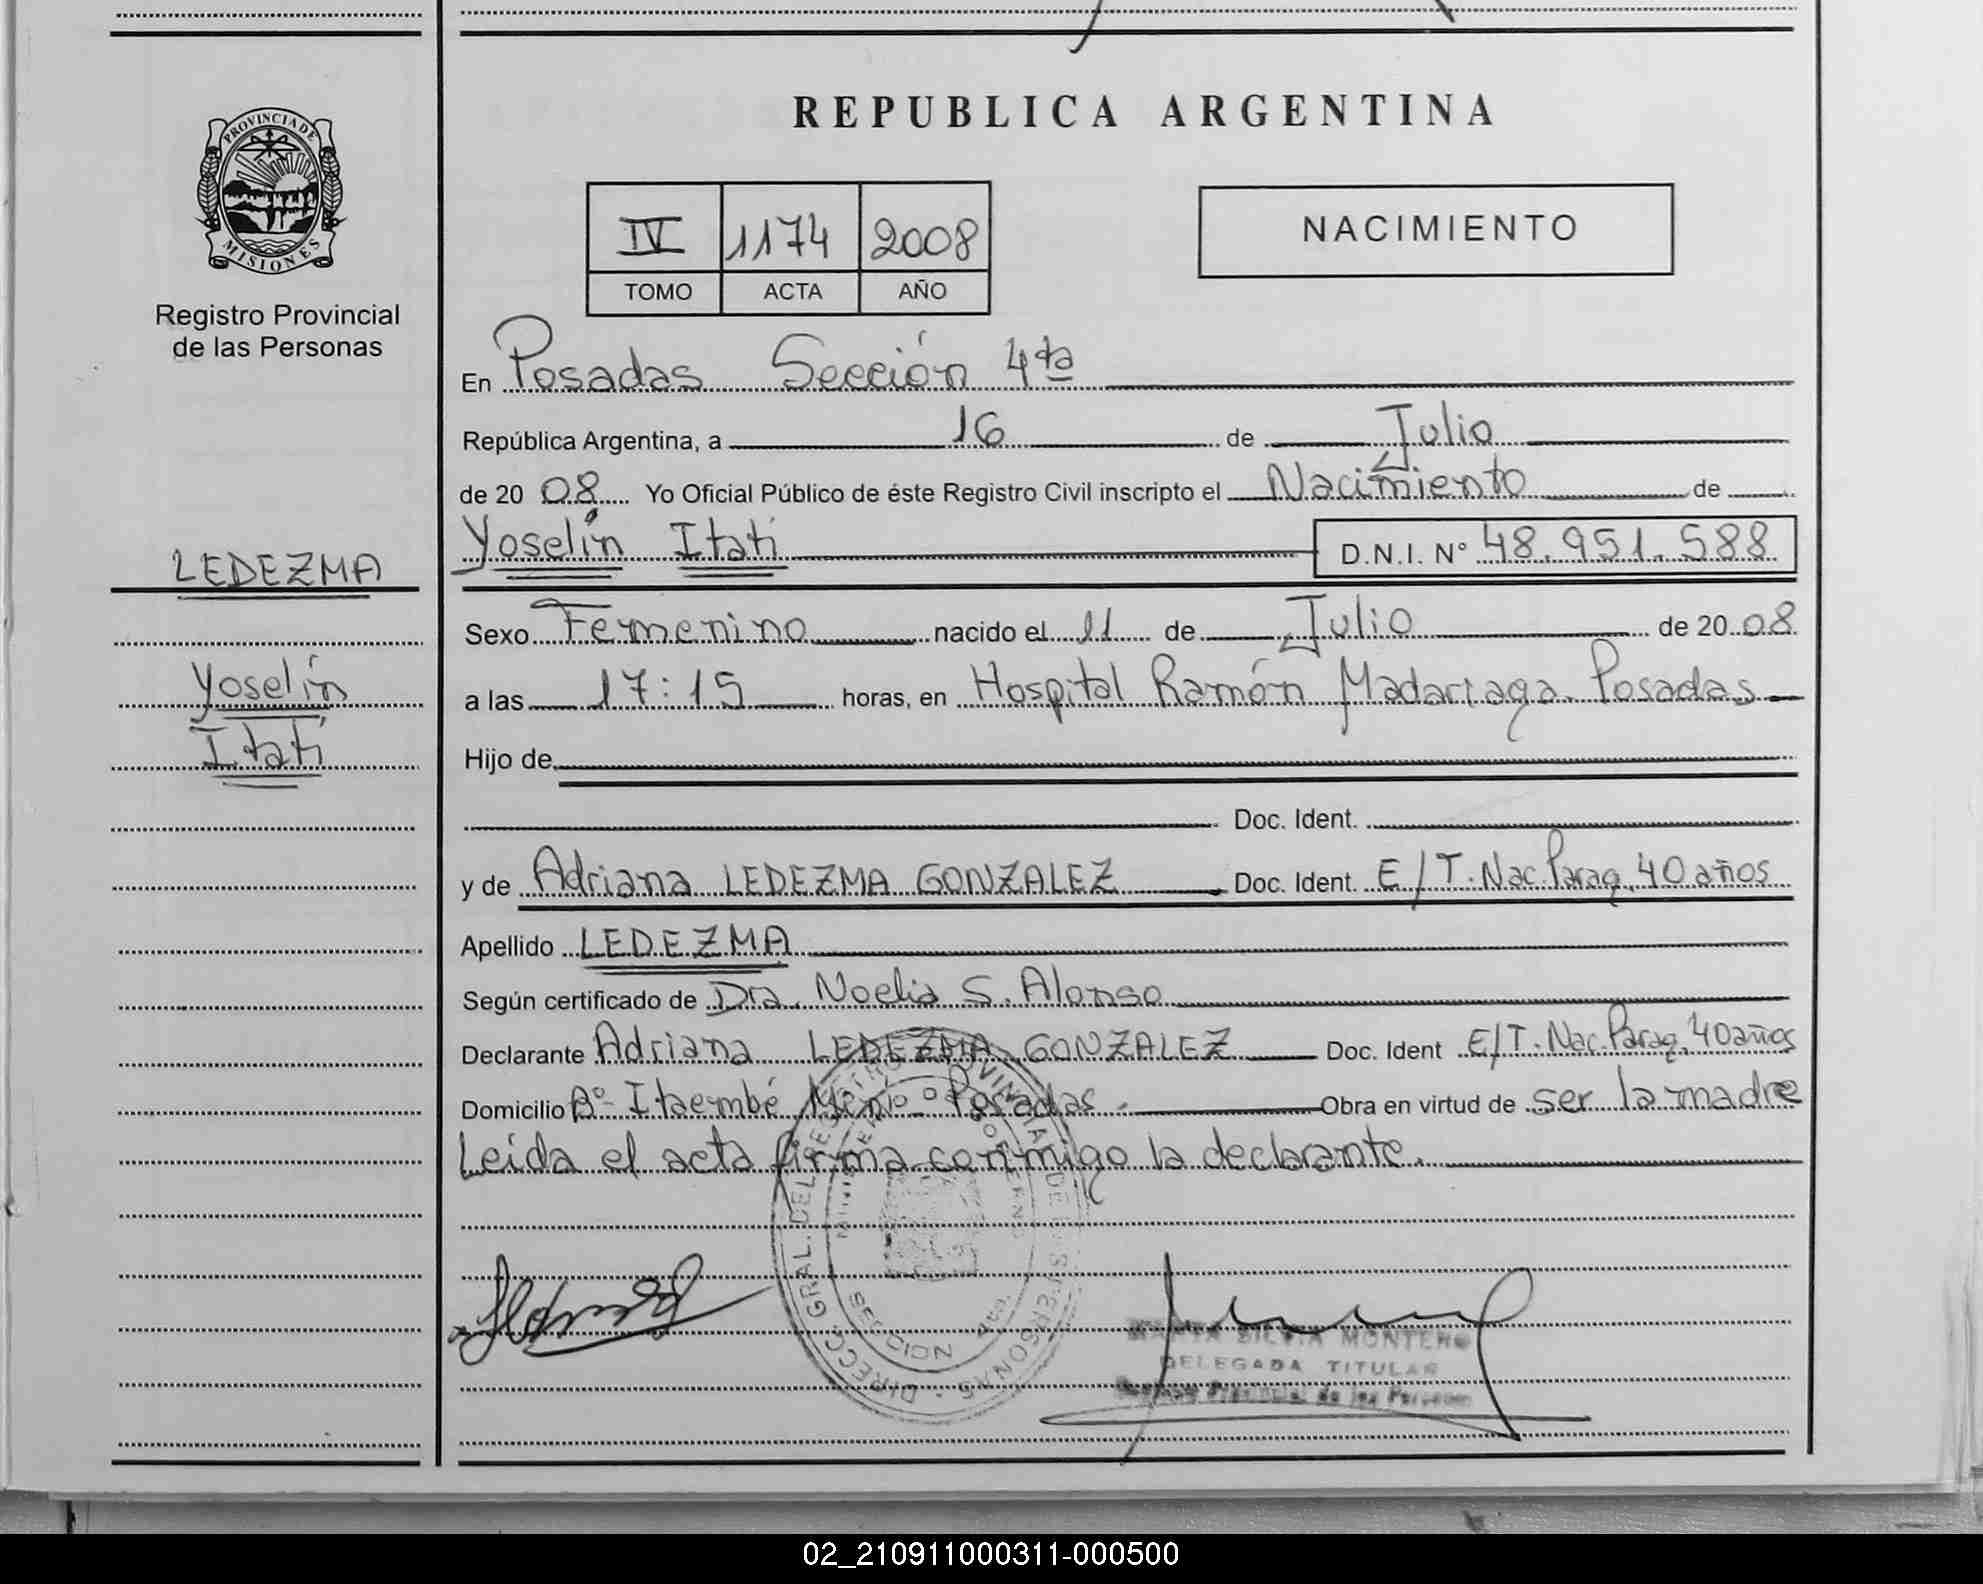 REPUBLICA ARGENTINA
PROVINCIA DE MISIONES
Registro Provincial
de las Personas
IV 1174 2008
TOMO ACTA AÑO
NACIMIENTO
En Posadas Sección 4ta
República Argentina, a 16 de Julio
de 20 08 Yo Oficial Público de éste Registro Civil inscripto el Nacimiento de
Yoselín Itatí D.N.I. N° 48.951.588
LEDEZMA
Yoselín
Itatí
Sexo Femenino nacido el 11 de Julio de 20 08
a las 17:15 horas, en Hospital Ramón Madariaga Posadas
Hijo de
Doc. Ident.
y de Adriana LEDEZMA GONZALEZ Doc. Ident. E/T. Nac. Parag. 40 años
Apellido LEDEZMA
Según certificado de Dra. Noelia S. Alonso
Declarante Adriana LEDEZMA GONZALEZ Doc. Ident E/T. Nac. Parag. 40 años
Domicilio B° Itaembé Miní - Posadas. Obra en virtud de ser la madre
Leída el acta firma conmigo la declarante.
MARTA SILVIA MONTERO
DELEGADA TITULAR
Registro Provincial de las Personas
02_210911000311-000500